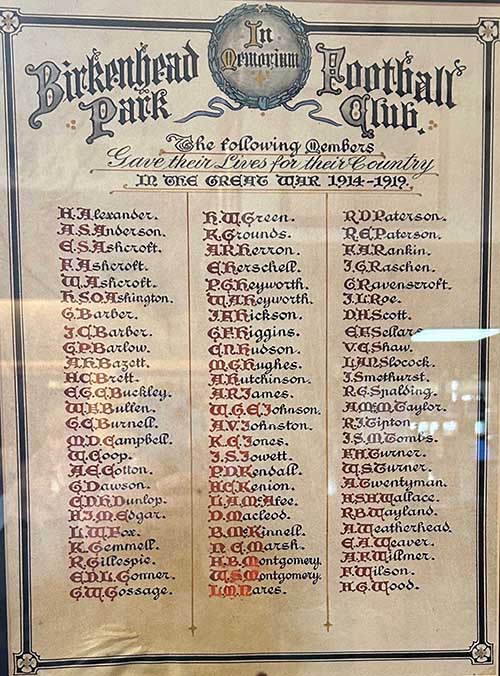 In
Memoriam
Birkenhead Football
Park Club.
The following Members
Gave their Lives for their Country
IN THE GREAT WAR 1914-1919.
H.Alexander.
A.S.Anderson.
E.S.Ashcroft.
F.Ashcroft.
W.Ashcroft.
H.S.O.Ashington.
G.Barber.
J.C.Barber.
G.P.Barlow.
A.H.Bazett.
H.C.Brett.
E.G.C.Buckley.
W.E.Bullen.
G.C.Burnell.
M.D.Campbell.
W.Coop.
A.E.Cotton.
G.Dawson.
C.D.H.Dunlop.
H.J.M.Edgar.
L.W.Fox.
K.Gemmell.
R.Gillespie.
E.D.L.Gonner.
G.W.Gossage.
H.W.Green.
R.Grounds.
A.R.Herron.
C.Herschell.
P.G.Heyworth.
W.A.Heyworth.
J.A.Hickson.
G.F.Higgins.
C.N.Hudson.
M.G.Hughes.
A.Hutchinson.
A.R.James.
W.G.E.Johnson.
A.V.Johnston.
K.C.Jones.
J.S.Jowett.
P.D.Kendall.
H.C.Kenion.
L.A.McAfee.
D.Macleod.
B.McKinnell.
N.C.Marsh.
H.B.Montgomery.
W.S.Montgomery.
L.M.Nares.
R.D.Paterson.
R.E.Paterson.
F.A.Rankin.
J.G.Raschen.
G.Ravenscroft.
J.L.Roe.
D.H.Scott.
E.F.Sellars.
V.E.Shaw.
L.A.N.Slocock.
J.Smethurst.
R.G.Spalding.
A.M.M.Taylor.
R.J.Tipton.
J.S.M.Tombs.
F.H.Turner.
W.S.Turner.
A.Twentyman.
H.S.H.Wallace.
R.B.Wayland.
A.Weatherhead.
E.A.Weaver.
A.F.Willmer.
F.Wilson.
H.G.Wood.